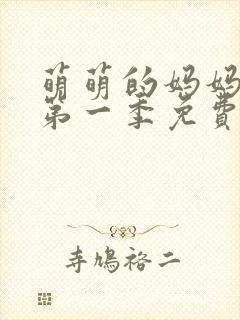 萌萌的妈妈
第一季免費
寺鳩裕二